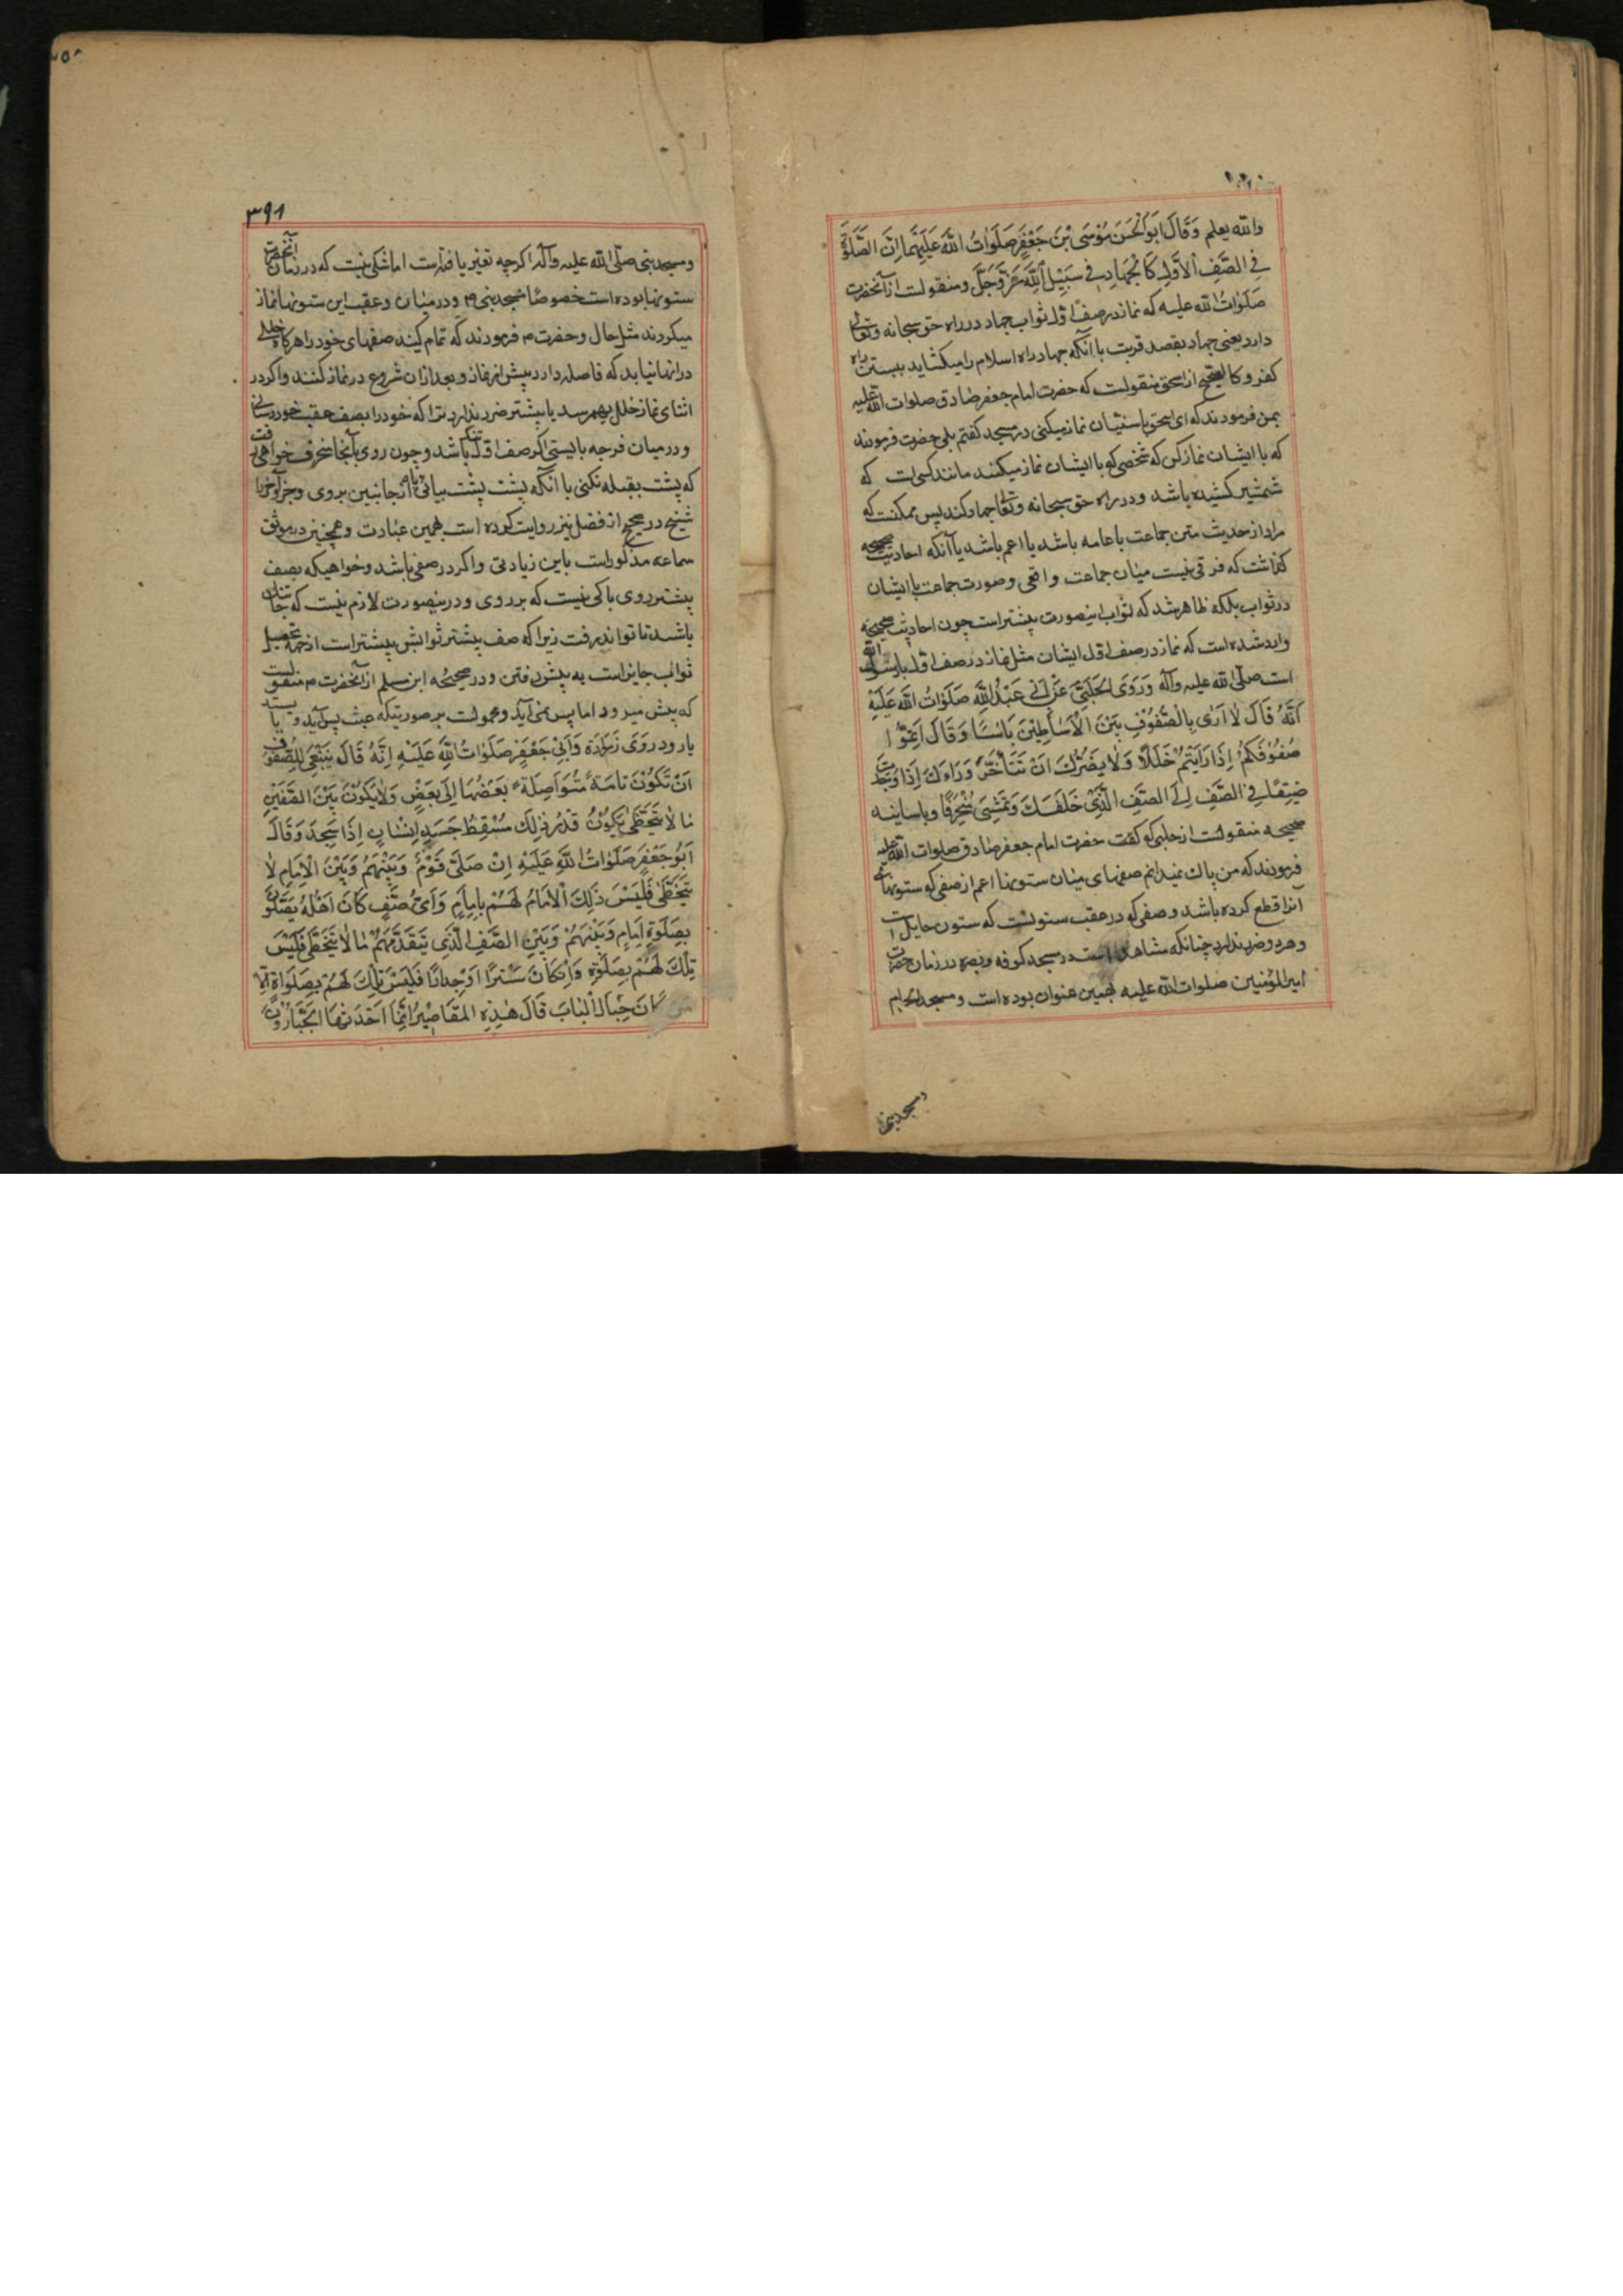 والله يعلم وَقَالَ اَبُو الْحَسَنِ مُوْسَى بْنَ جَعْفَرٍ صَلَوَاتُ اللهِ عَلَيْهِمَا اِنَّ الصَّلٰوةَ
فِي الصَّفِّ الْاَوَّلِ كَالْجِهَادِ فِي سَبِيْلِ اللهِ عَزَّ وَجَلَّ و منقولست از آنحضرت
صَلَوٰاتُ الله عليه كه نماز در صف اول ثواب جهاد در راه حق سبحانه و تعالى
دارد يعنى جهاد بقصد قربت با آنكه جهاد راه اسلام را ميكشايد ببستن راه
كفر و كالصحيح از اسحق منقولست كه حضرت امام جعفر صادق صلوات الله عليه
بمن فرمودند كه اى اسحق با سنيان نماز ميكنى در مسجد كفتم بلى حضرت فرمودند
كه با ايشان نماز كن كه شخصى كه با ايشان نماز ميكند مانند كسى است كه
شمشير كشيده باشد و در راه حق سبحانه و تعالى جهاد كند پس ممكنست كه
مراد از حديث متن جماعت با عامه باشد يا اعم باشد يا آنكه احاديث صحيحه
كذاشت كه فرقى نيست ميان جماعت واقعى و صورت جماعت با ايشان
در ثواب بلكه ظاهر شد كه ثواب اينصورت بيشتر است چون احاديث صحيحه
وارد شده است كه نماز در صف اول ايشان مثل نماز در صف اول با رسول الله
است صلّى الله عليه وآله وَرَوَى الْحَلَبِيُّ عَنْ اَبِي عَبْدِ اللهِ صَلَوٰاتُ الله عَلَيْهِ
اَنَّهُ قَالَ لٰا اَرٰى بِالصُّفُوْفِ بَيْنَ الْاَسَاطِيْنَ بَاْسًا وَقَالَ اَتِمُّوْا
صُفُوْفَكُمْ اِذَا رَاَيْتُمْ خَلَلًا وَلٰا يَضُرُّكَ اَنْ تَتَاَخَّرَ وَرَاءَكَ اِذَا وَجَدْتَ
ضَيِّقًا فِي الصَّفِّ اِلَى الصَّفِّ الَّذِيْ خَلْفَكَ وَتَمْشِىَ مُنْحَرِفًا و باسانيد
صحيحه منقولست از حلبى كه كفت حضرت امام جعفر صادق صلوات الله عليه
فرمودند كه من باك نميدانم صفهاى ميان ستونها اعم از صفى كه ستونها
آنرا قطع كرده باشد و صفى كه در عقب ستونست كه ستون حايل است
و هر دو ضرر ندارد چنانكه مشاهد است در مسجد كوفه و بصره در زمان حضرت
امير المؤمنين صلوات الله عليه بهمين عنوان بوده است و مسجد الحرام
و مسجد نبى
۳۹۱
و مسجد نبى صلّى الله عليه وآله اكرچه تغير يافته است اما شكى نيست كه در زمان آنحضرت
ستونها بوده است خصوصًا مسجد نبى ص و در ميان و عقب اين ستونها نماز
ميكردند مثل حال و حضرت م فرمودند كه تمام كنيد صفهاى خود را هركاه خللى
در انها نيابد كه فاصله دارد پيش از نماز و بعد از ان شروع در نماز كنند و اكر در
اثناى نماز خللى بهم رسد يا بيشتر ضرر ندارد ترا كه خود را بصف عقب خود رسانى
و در ميان فرجه بايستى اكر صف اول تنك باشد و چون روى بآنجا منحرف خواهى رفت
كه پشت بقبله نكنى با آنكه پشت پشت بيائى يا از جانبين بروى و جزو آخر را
شيخ در صحيح از فضل نيز روايت كرده است بهمين عبارت و همچنين در موثق
سماعه مذكور است باين زيادتى و اكر در صفى باشد و خواهيكه بصف
پيشتر روى باكى نيست كه بر روى و درينصورت لازم نيست كه جا تنك
باشد تا تواند رفت زيرا كه صف پيشتر ثوابش بيشتر است از جهة تحصيل
ثواب جايز است به پيش رفتن و در صحيحه ابن مسلم از آنحضرت م منقولست
كه پيش ميرود اما پس نمى آيد و محمولست بر صورتيكه عبث پس آيد و يا بيستد
يا رود رَوَى زُرَارَةُ وَاَبِيْ جَعْفَرٍ صَلَوَاتُ اللهِ عَلَيْهِ اِنَّهُ قَالَ يَنْبَغِى لِلصُّفُوْفِ
اَنْ تَكُوْنَ تَامَةً مُتَوَاصِلَةً بَعْضُهَا اِلٰى بَعْضٍ وَلٰا يَكُوْنَ بَيْنَ الصَّفَيْنِ
مٰا لٰا يَتَخَطّٰى يَكُوْنُ قَدْرُ ذٰلِكَ مَسْقَطُ جَسَدِ اِنْسَانٍ اِذَا سَجَدَ وَقَالَ
اَبُو جَعْفَرٍ صَلَوٰاتُ اللهِ عَلَيْهِ اِنْ صَلّٰى قَوْمٌ وَبَيْنَهُمْ وَبَيْنَ الْاِمَامِ لٰا
يَتَخَطّٰى فَلَيْسَ ذٰلِكَ الْاِمَامُ لَهُمْ بِاِمَامٍ وَاَىُّ صَفٍّ كَانَ اَهْلُهُ يُصَلُّوْنَ
بِصَلٰوةِ اِمَامٍ وَبَيْنَهُمْ وَبَيْنَ الصَّفِّ الَّذِى يَتَقَدَّمُهُمْ مٰا لٰا يَتَخَطّٰى فَلَيْسَ
تِلْكَ لَهُمْ بِصَلٰوةٍ وَاِنْ كَانَ سِتْرًا اَوْ جِدَارًا فَلَيْسَ تِلْكَ لَهُمْ بِصَلَوٰاةٍ اِلّٰا
مَنْ كَانَ حِيَالَ الْبٰابِ قَالَ هٰذِهِ الْمَقَاصِيْرُ اِنَّمَا اَحْدَثَهَا الْجَبَّارُوْنَ